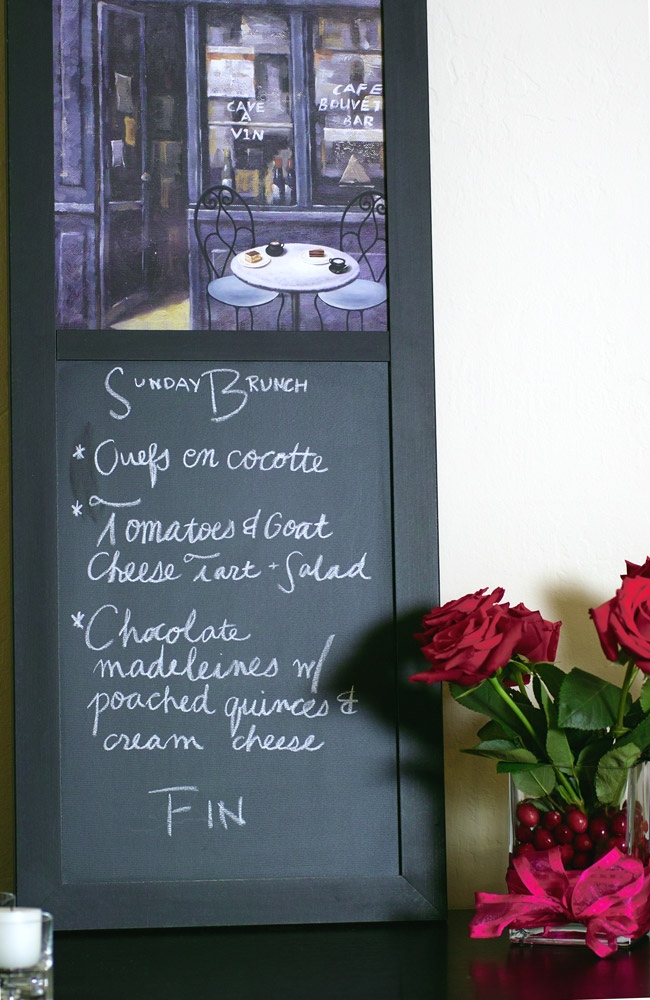 CAVE
A
VIN
CAFE
BOUVET
BAR
SUNDAY BRUNCH
* Ouefs en cocotte
* Tomatoes & Goat
Cheese Tart + Salad
* Chocolate
madeleines w/
poached quinces &
cream cheese
FIN